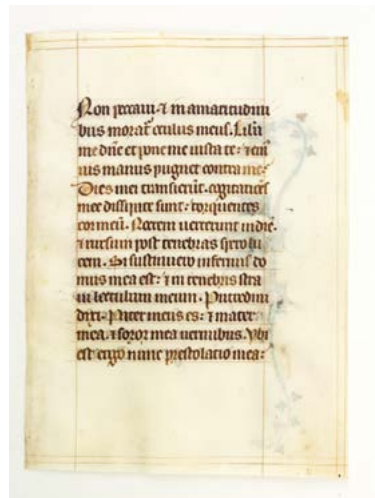 Non peccaui. ⁊ in amaritudini
bus morat᷑ oculus meus. Libera
me dñe et pone me iuxta te: ⁊ cui
ius manus pugnet contra me.
Dies mei transierũt. cogitatiões
mee dissipate sunt: torquentes
cor meũ. Noctem uerterunt in diẽ.
⁊ rursum post tenebras spero lu
cem. Si sustinuero infernus do
mus mea est: ⁊ in tenebris stra
ui lectulum meum. Putredini
dixi. Pater meus es: ⁊ mater
mea. ⁊ soror mea uermibus. Vbi
est ergo nunc prestolacio mea: